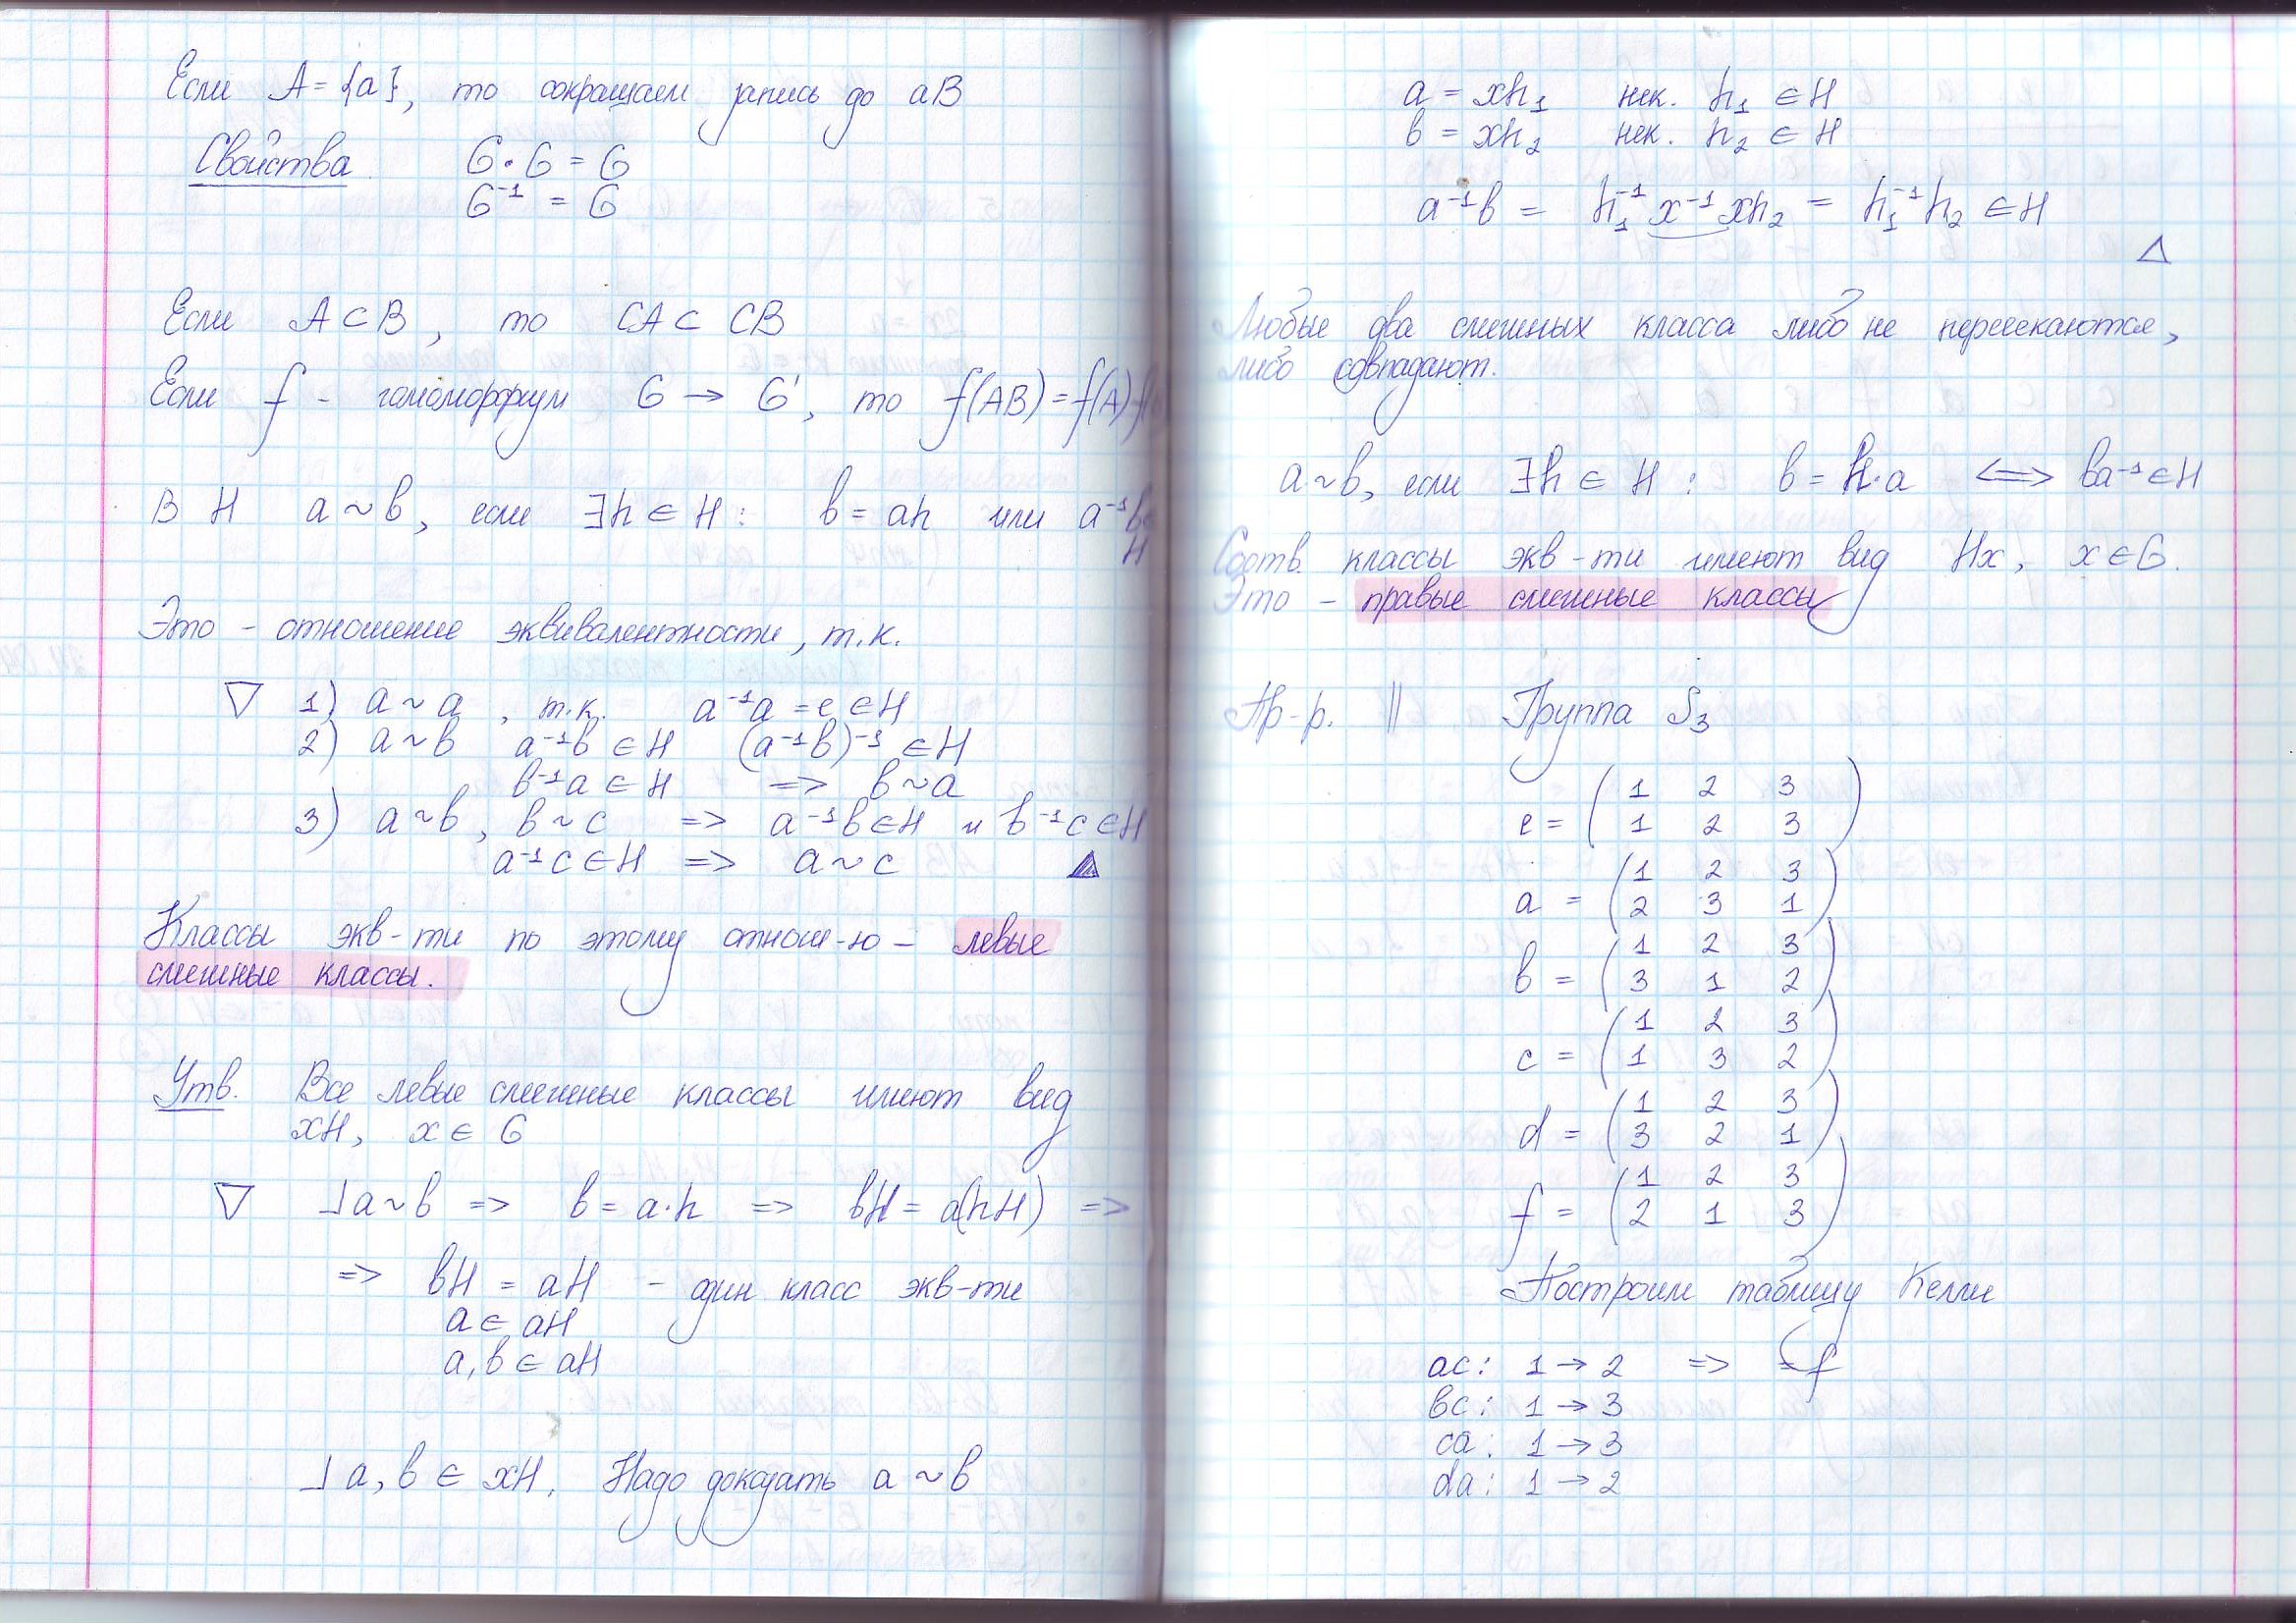 Если A = {a}, то сокращаем запись до aB
Свойства G·G = G
G⁻¹ = G
Если A ⊂ B, то CA ⊂ CB
Если f - гомоморфизм G → G', то f(AB) = f(A) f(
В H a ~ b, если ∃h ∈ H: b = ah или a⁻¹b ∈
H
Это - отношение эквивалентности, т.к.
▽ 1) a ~ a, т.к. a⁻¹a = e ∈ H
2) a ~ b a⁻¹b ∈ H (a⁻¹b)⁻¹ ∈ H
b⁻¹a ∈ H => b ~ a
3) a ~ b, b ~ c => a⁻¹b ∈ H и b⁻¹c ∈ H
a⁻¹c ∈ H => a ~ c △
Классы экв-ти по этому отнош-ю - левые
смежные классы.
Утв. Все левые смежные классы имеют вид
xH, x ∈ G
▽ ⅃ a ~ b => b = a·h => bH = a(hH) =>
=> bH = aH - один класс экв-ти
a ∈ aH
a, b ∈ aH
⅃ a, b ∈ xH. Надо доказать a ~ b
a = xh₁ нек. h₁ ∈ H
b = xh₂ нек. h₂ ∈ H
a⁻¹b = h₁⁻¹x⁻¹xh₂ = h₁⁻¹h₂ ∈ H
△
Любые два смежных класса либо не пересекаются,
либо совпадают.
a ~ b, если ∃h ∈ H: b = h·a <=> ba⁻¹ ∈ H
Соотв. классы экв-ти имеют вид Hx, x ∈ G.
Это - правые смежные классы
Пр-р. || Группа S₃
e = ( 1 2 3 )
1 2 3
a = ( 1 2 3 )
2 3 1
b = ( 1 2 3 )
3 1 2
c = ( 1 2 3 )
1 3 2
d = ( 1 2 3 )
3 2 1
f = ( 1 2 3 )
2 1 3
Построим таблицу Келли
ac: 1 → 2 => = f
bc: 1 → 3
ca: 1 → 3
da: 1 → 2